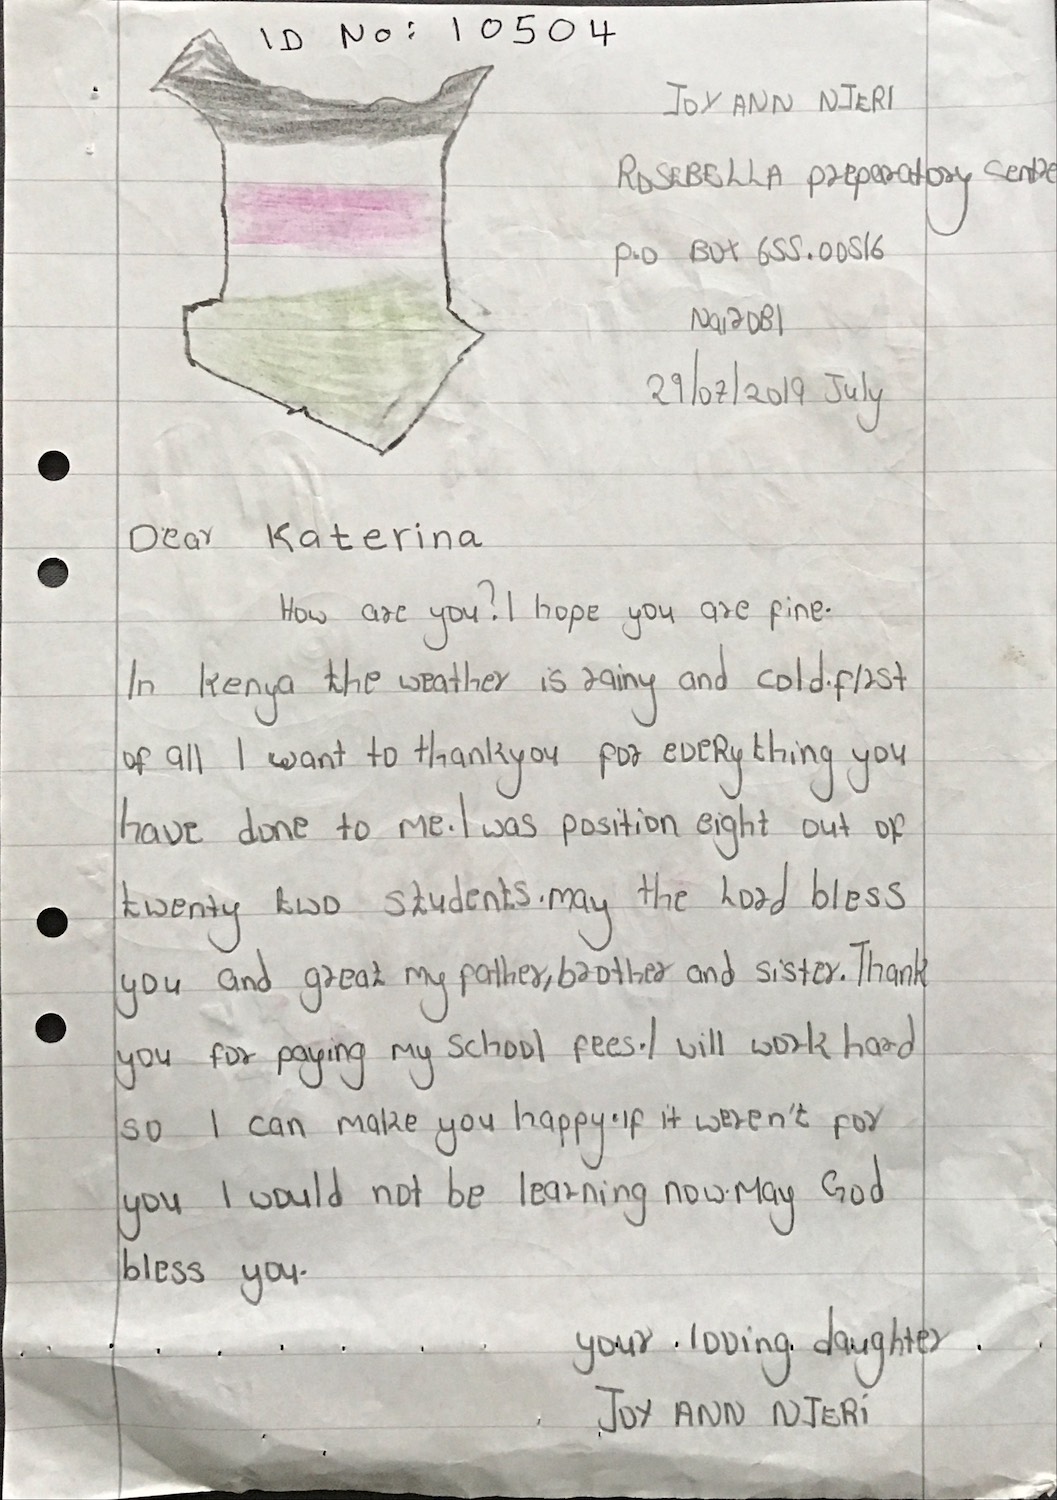 ID No: 10504
JOY ANN NJERI
ROSEBELLA preparatory Sentre
P.O BOX 655.00516
NairoBI
29/07/2019 July
Dear Katerina
How are you? I hope you are fine.
In Kenya the weather is rainy and cold. first
of all I want to thankyou for everything you
have done to me. I was position eight out of
twenty two students. may the Lord bless
you and great my father, brother and sister. Thank
you for paying my school fees. I will work hard
so I can make you happy. if it weren't for
you I would not be learning now. May God
bless you.
your loving daughter
JOY ANN NJERI